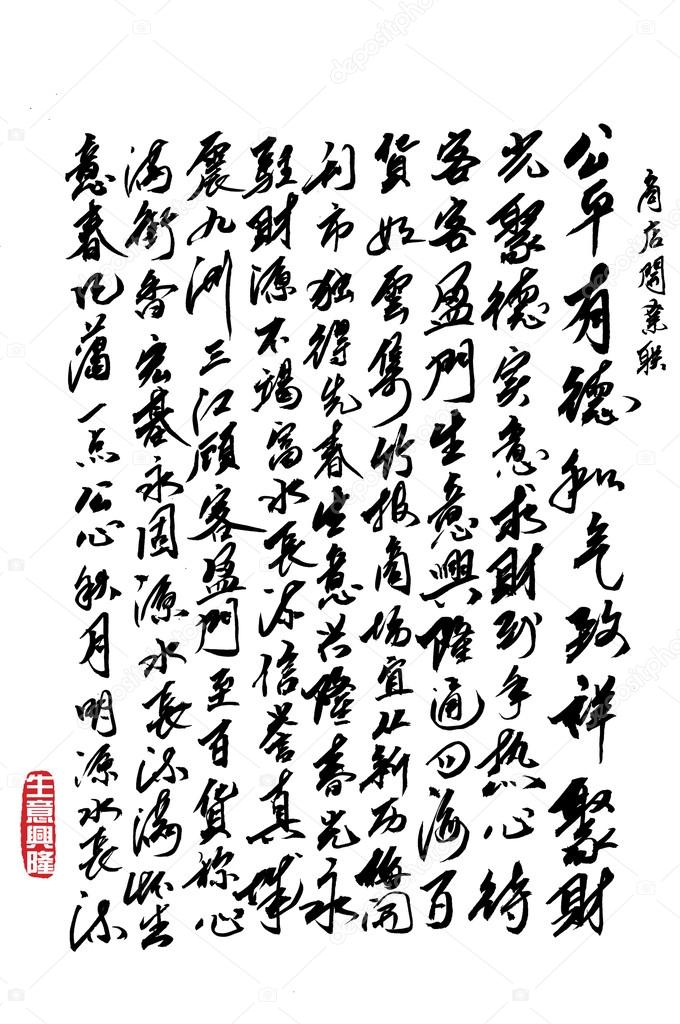 商店開業联
公平有德和气致祥聚財
光聚德实意求財到手热心待
客客盈門生意興隆通四海百
貨如雲集竹报商场宜从新巧梅開
利市独得先春生意兴隆春光永
駐財源不竭富水長流信誉真诚
震九洲三江顾客盈門至百貨称心
满街香宏基永固源水長流满怀生
意春风一点公心秋月明源水長流
生意興隆
depositphotos